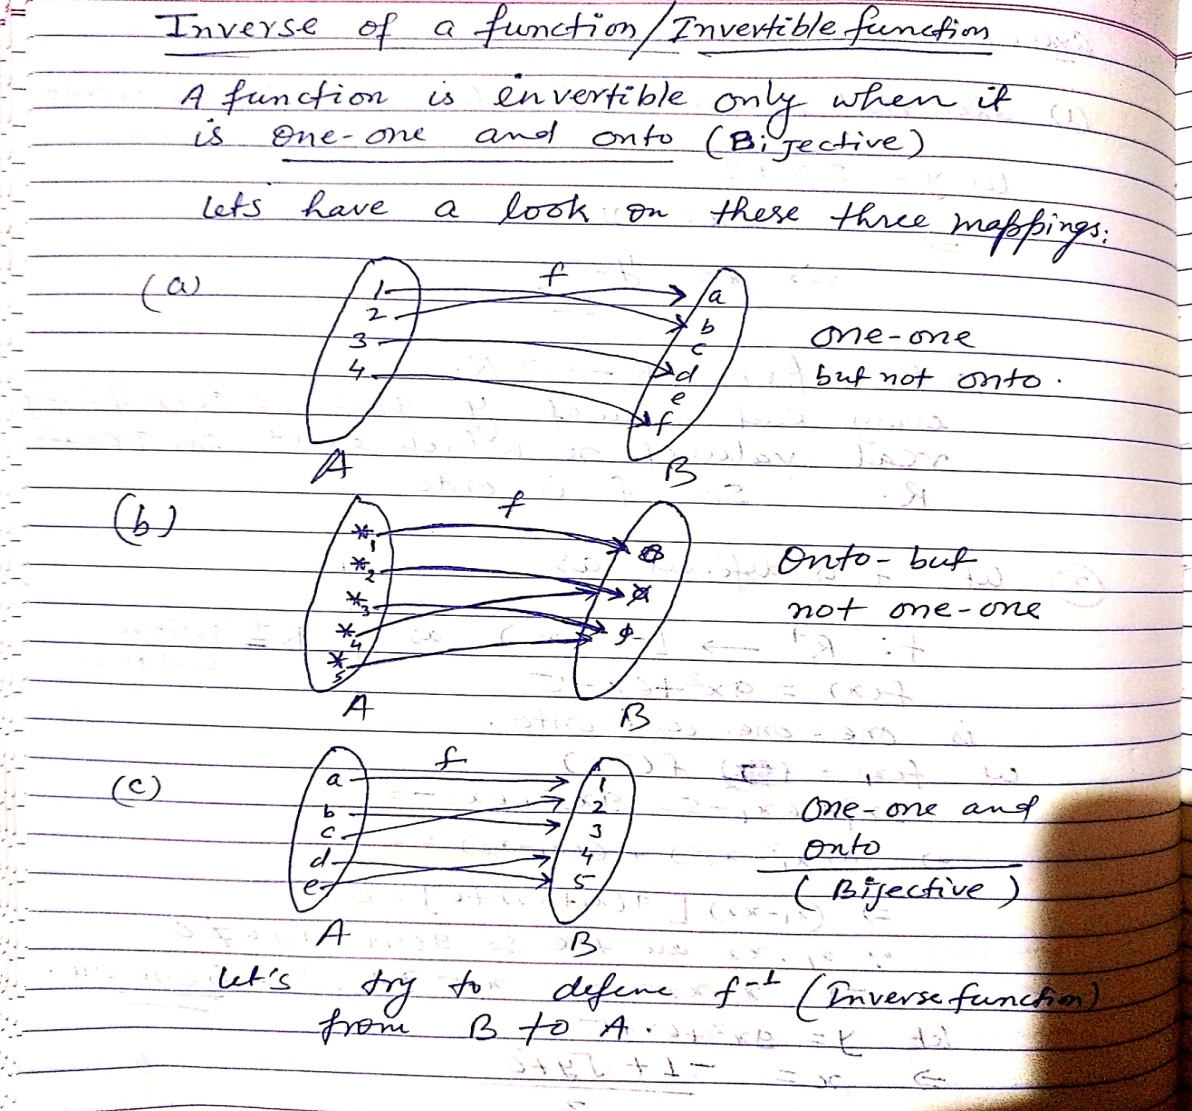 Inverse of a function/Invertible function
A function is invertible only when it
is one-one and onto (Bijective)
Lets have a look on these three mappings:
(a)
f
1
2
3
4
a
b
c
d
e
f
one-one
but not onto.
A
B
(b)
f
1
2
3
4
5
Onto-but
not one-one
A
B
(c)
f
a
b
c
d
e
1
2
3
4
5
One-one and
onto
(Bijective)
A
B
Let's try to define f⁻¹ (Inverse function)
from B to A.